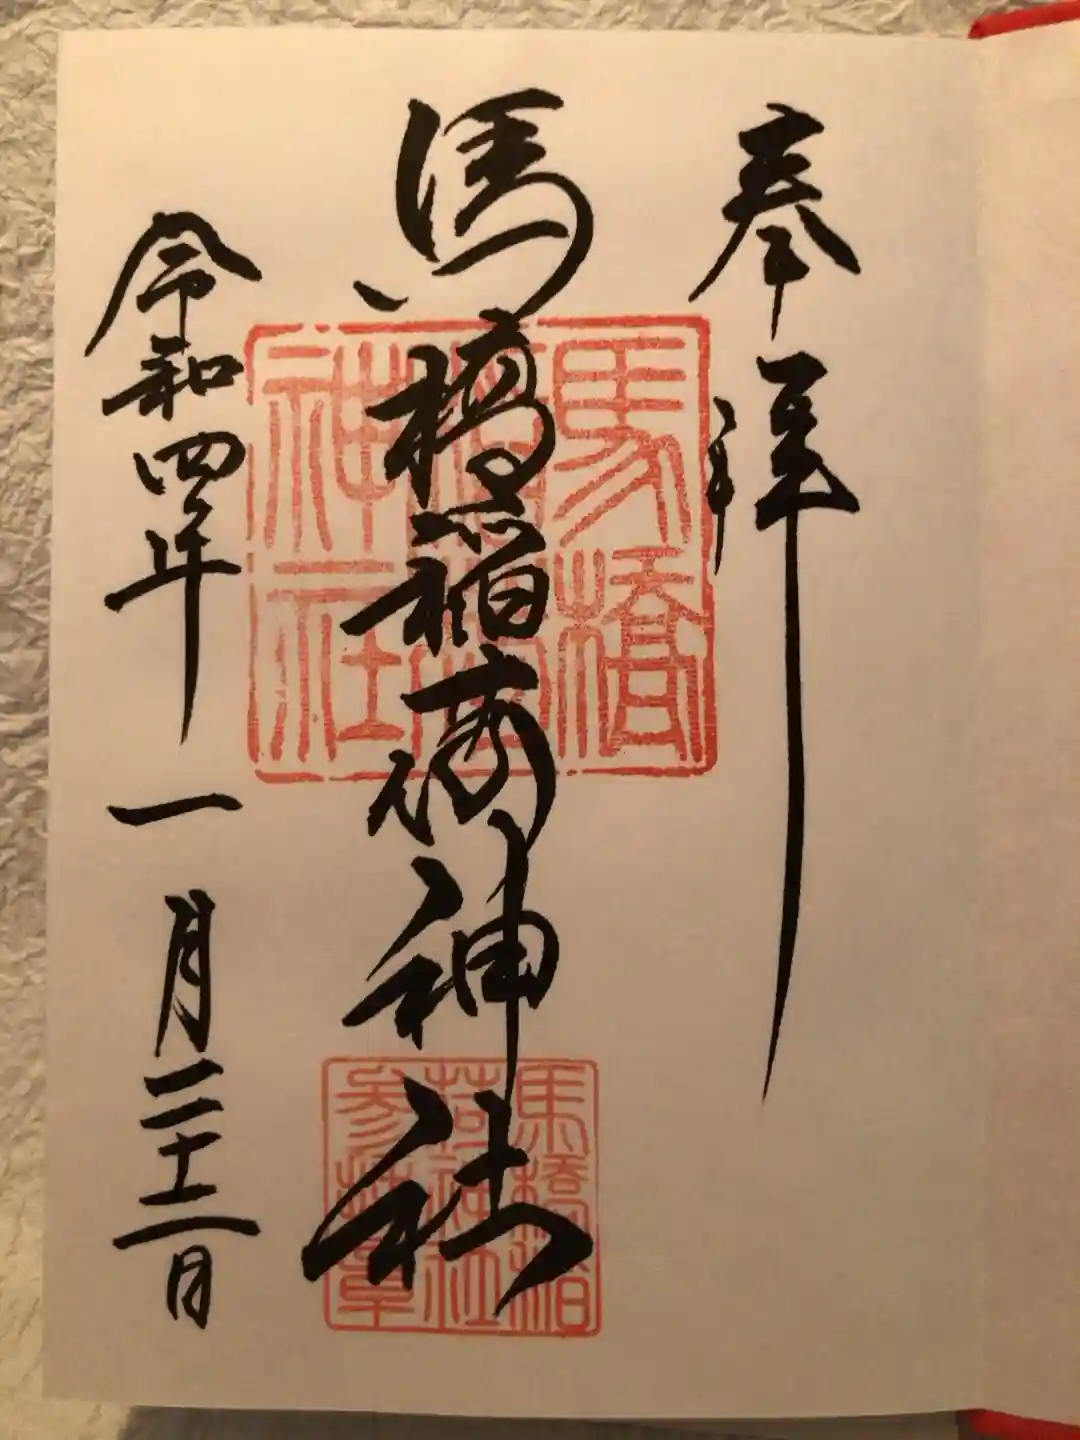 奉拝
馬橋稲荷神社
令和四年一月二十二日
馬橋稲荷神社
馬橋稲荷神社参拝章